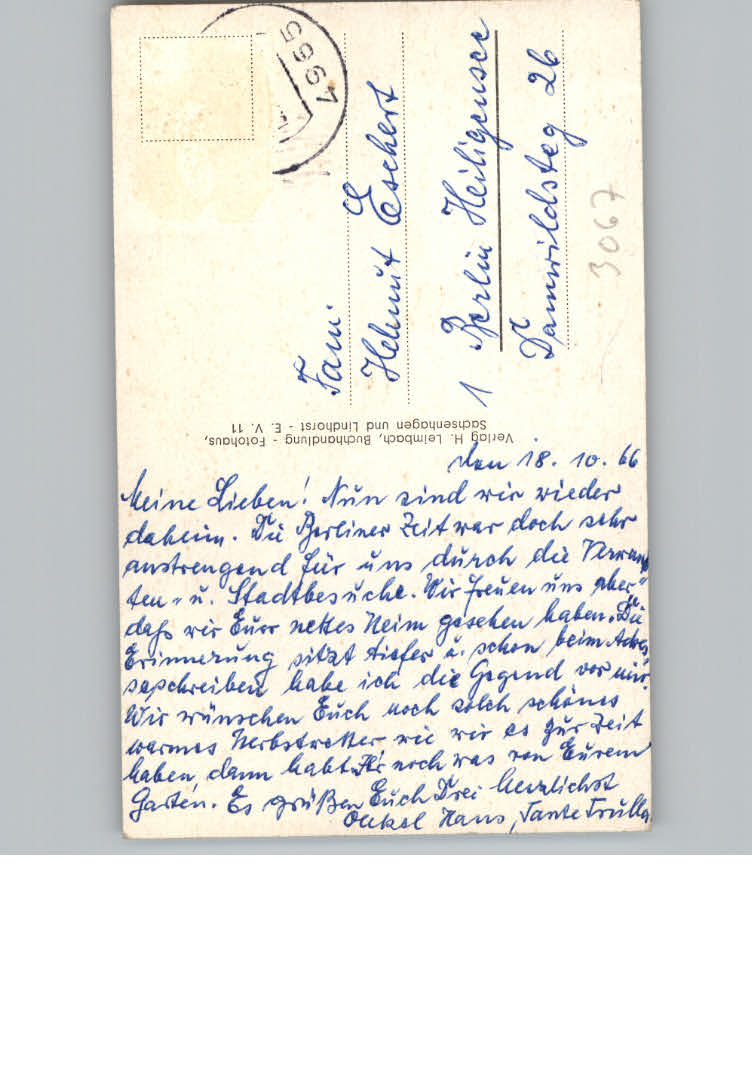 4965
Fam.
Helmut Eschert
1 Berlin Heiligensee
Damwildsteg 26
3067
Verlag H. Leimbach, Buchhandlung - Fotohaus,
Sachsenhagen und Lindhorst - E. V. 11
den 18. 10. 66
Meine Lieben! Nun sind wir wieder
daheim. Die Berliner Zeit war doch sehr
anstrengend für uns durch die Verwand
ten- u. Stadtbesuche. Wir freuen uns aber
daß wir Euer nettes Heim gesehen haben. Die
Erinnerung sitzt tiefer u. schon beim Adres
seschreiben habe ich die Gegend vor mir.
Wir wünschen Euch noch solch schönes
warmes Herbstwetter wie wir es zur Zeit
haben, dann habt Ihr noch was von Eurem
Garten. Es grüßen Euch Drei herzlichst
Onkel Hans, Tante Trulla